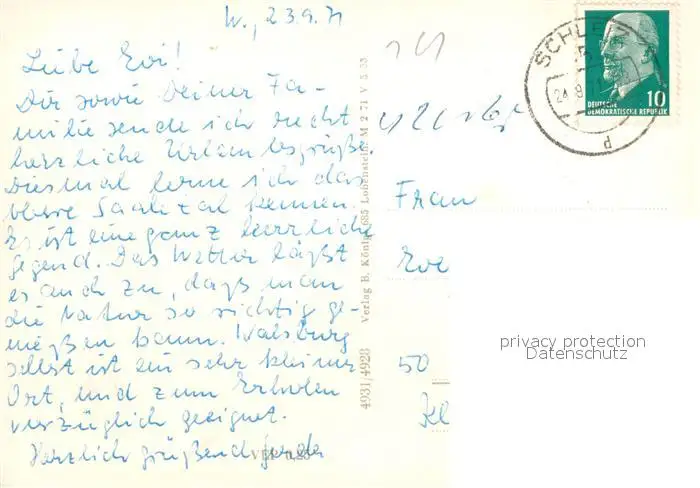 W., 23.9.71
Liebe Evi!
Dir sowie Deiner Fa-
milie sende ich recht
herzliche Urlaubsgrüße
Diesmal lerne ich das
obere Saaltal kennen.
Es ist eine ganz herrliche
Gegend. Das Wetter läßt
es auch zu, daß man
die Natur so richtig ge-
nießen kann. Walsburg
selbst ist ein sehr kleiner
Ort, und zum Erholen
vorzüglich geeignet.
Herzlich grüßend
VEP 0,25
4931/4928 Verlag B. König, 685 Lobenstein M 2 71 V 5 53
SCHLEIZ
d
DEUTSCHE
DEMOKRATISCHE REPUBLIK
10
Frau
Eve
50
Kl
privacy protection
Datenschutz